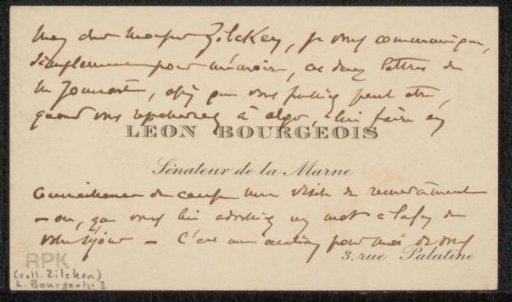 Mon cher Monsieur Zilcken, je vous communique,
simplement pour mémoire, ces deux lettres de
M. afin que vous puissiez peut être,
quand vous à Alger, lui faire en
LEON BOURGEOIS
Sénateur de la Marne
de une visite de remerciement
– ou, que vous lui un mot à la fin de
votre séjour – C'est une pour moi de vous
3, rue Palatine
RPK
(coll. Zilcken)
L. Bourgeois 2